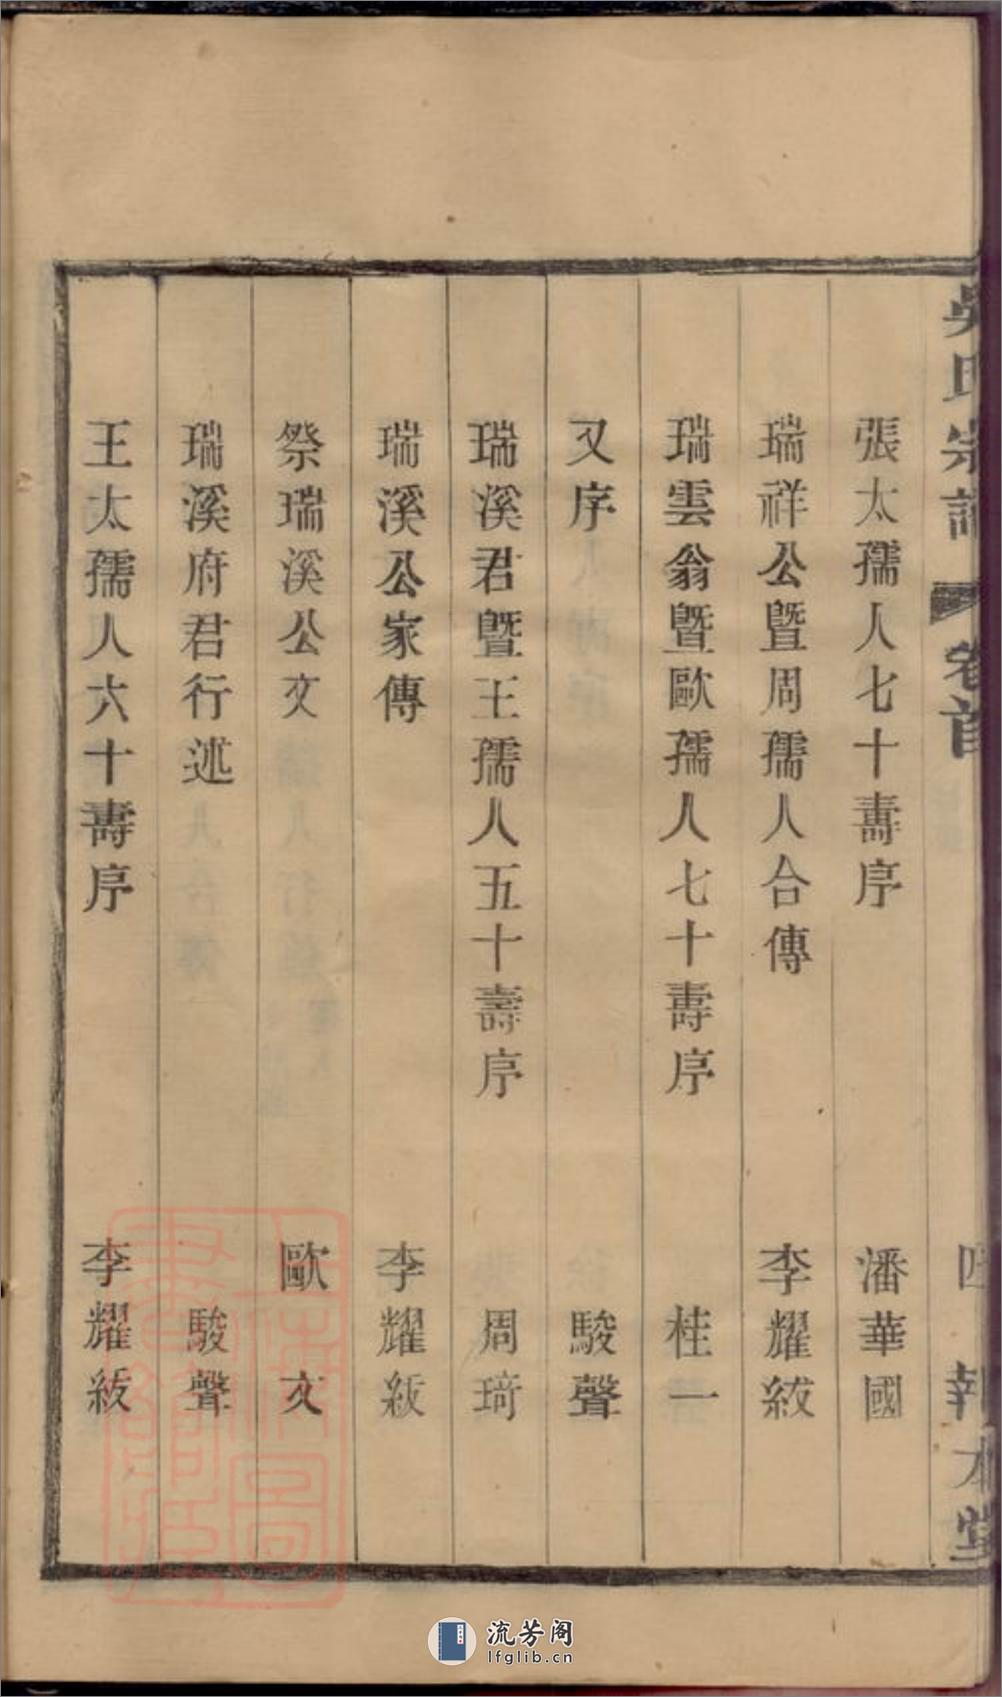 吳氏宗譜 卷首 四 報本堂
張太孺人七十壽序 潘華國
瑞祥公暨周孺人合傳 李耀紱
瑞雲翁暨歐孺人七十壽序 桂一
又序 駿聲
瑞溪君暨王孺人五十壽序 周琦
瑞溪公家傳 李耀紱
祭瑞溪公文 歐文
瑞溪府君行述 駿聲
王太孺人六十壽序 李耀紱
流芳阁
lfglib.cn